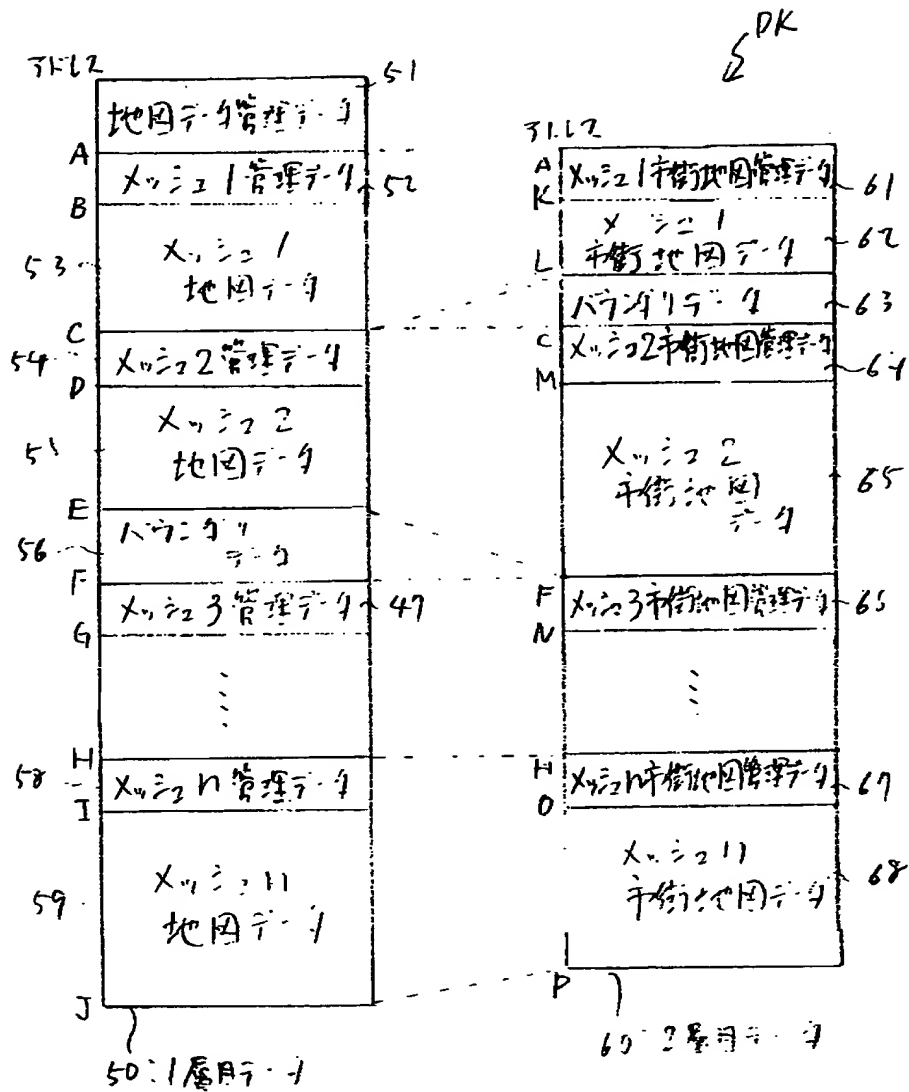 DK
アドレス
51
地図データ管理データ
A
メッシュ1管理データ
52
B
53
メッシュ1
地図データ
C
54
メッシュ2管理データ
D
55
メッシュ2
地図データ
E
56
バウンダリ
データ
F
メッシュ3管理データ
47
G
H
58
メッシュn管理データ
I
59
メッシュn
地図データ
J
50:1層目データ
アドレス
A
メッシュ1市街地図管理データ
61
K
メッシュ1
市街地図データ
62
L
バウンダリデータ
63
C
メッシュ2市街地図管理データ
64
M
メッシュ2
市街地図
データ
65
F
メッシュ3市街地図管理データ
66
N
H
メッシュn市街地図管理データ
67
O
メッシュn
市街地図データ
68
P
60:2層目データ